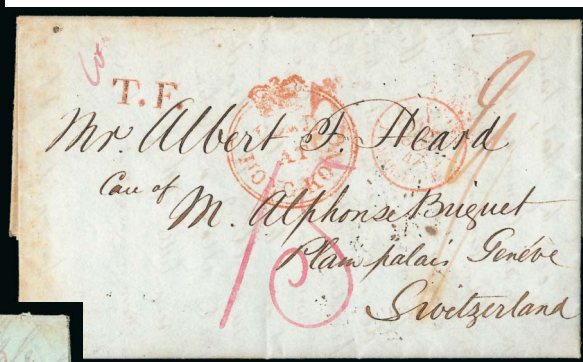 T.F
Mr. Albert F. Heard
Care of
M. Alphonse Briquet
Plain palais Genève
Switzerland
18